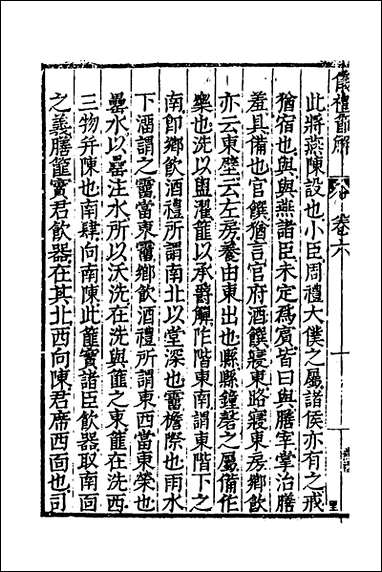 儀禮節解 卷六
此將燕陳設也小臣周禮大僕之屬諸侯亦有之戒
猶宿也與與燕諸臣未定爲賓皆曰與膳宰掌治膳
羞具備也官饌猶言官府酒饌寢東路寢東房鄉飲
亦云東壁云左房養由東出也縣縣鐘磬之屬備作
樂也洗以盥濯篚以承爵觶阼階東南謂東階下之
南卽鄉飲酒禮所謂南北以堂深也霤檐際也雨水
下溜謂之霤當東霤鄉飲酒禮所謂東西當東榮也
罍水以罍注水所以沃洗在洗與篚之東篚在洗西
三物并陳也南肆向南陳此篚實諸臣飲器取南面
之義膳篚實君飲器在其北西向陳君席西面也司